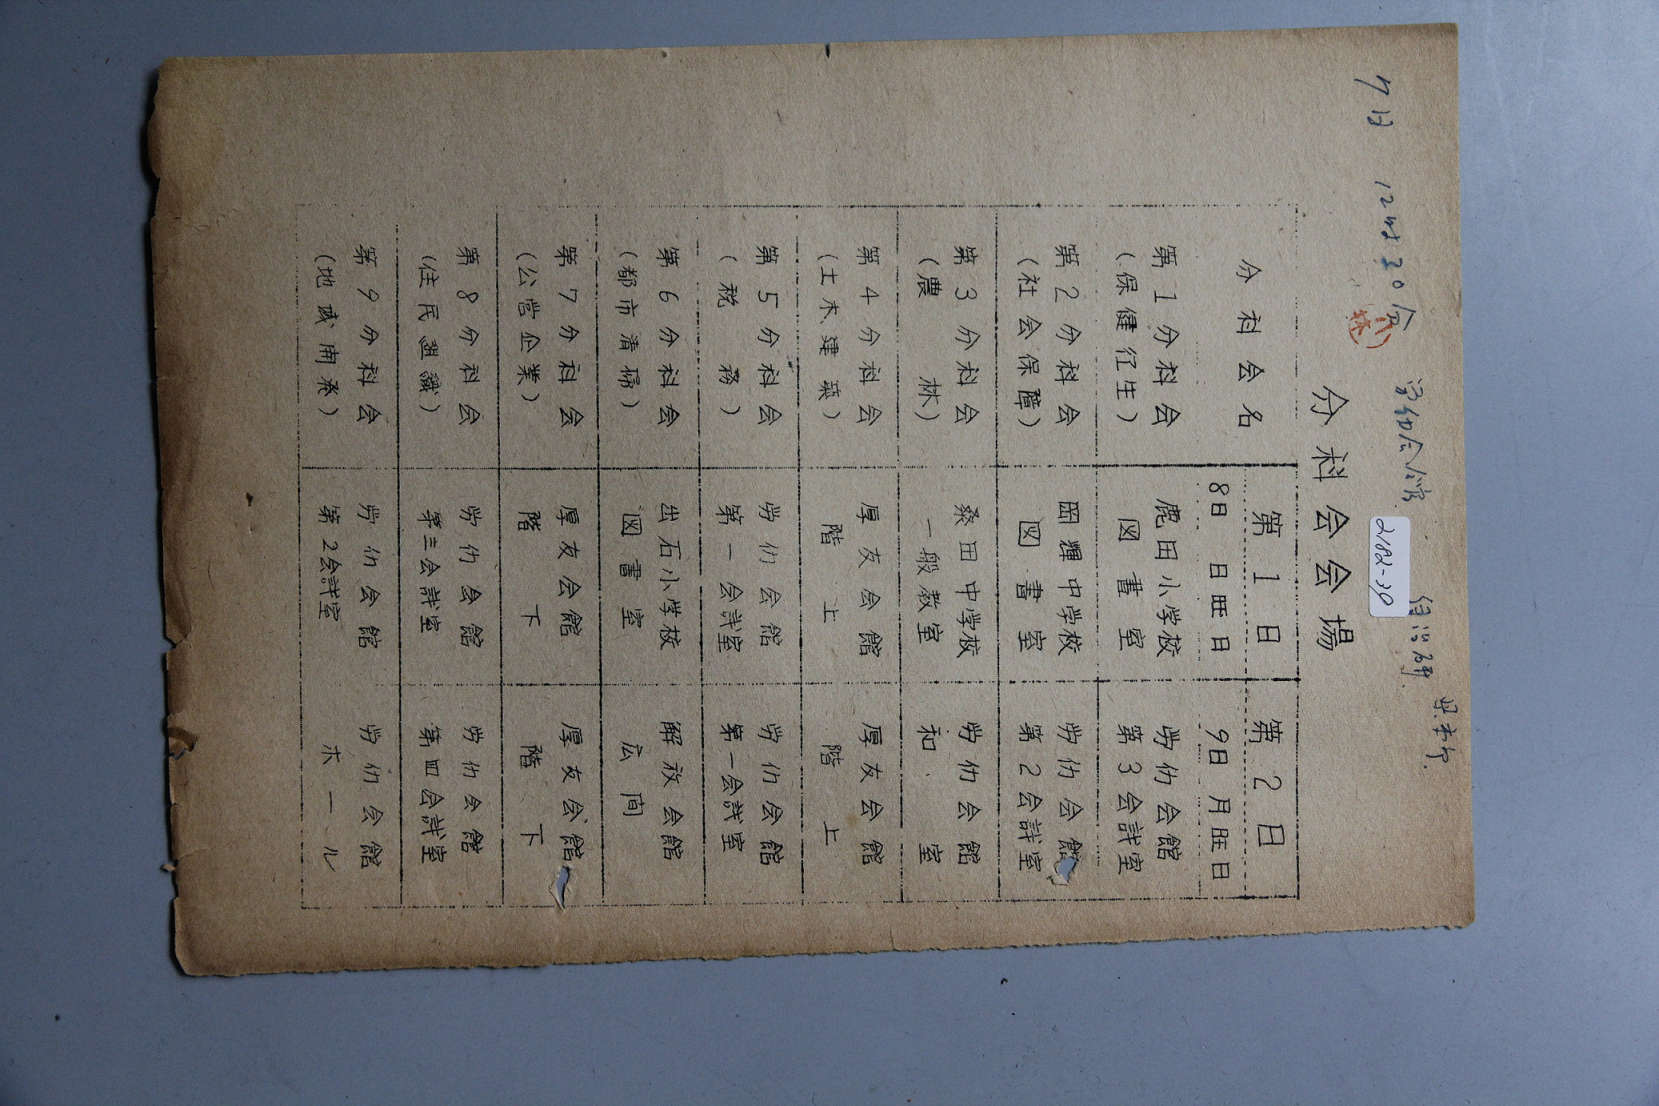 7日 12時30分 労働会館 自治研
2182-30
分科会会場
分科会名 第1日 第2日
8日 日曜日 9日 月曜日
第1分科会 鹿田小学校 労仂会館
(保健衛生) 図書室 第3会議室
第2分科会 岡輝中学校 労仂会館
(社会保障) 図書室 第2会議室
第3分科会 桑田中学校 労仂会館
(農林) 一般教室 和室
第4分科会 厚友会館 厚友会館
(土木、建築) 階上 階上
第5分科会 労仂会館 労仂会館
(税務) 第一会議室 第一会議室
第6分科会 出石小学校 解放会館
(都市清掃) 図書室 広間
第7分科会 厚友会館 厚友会館
(公営企業) 階下 階下
第8分科会 労仂会館 労仂会館
(住民組織) 第三会議室 第四会議室
第9分科会 労仂会館 労仂会館
(地域開発) 第2会議室 ホール